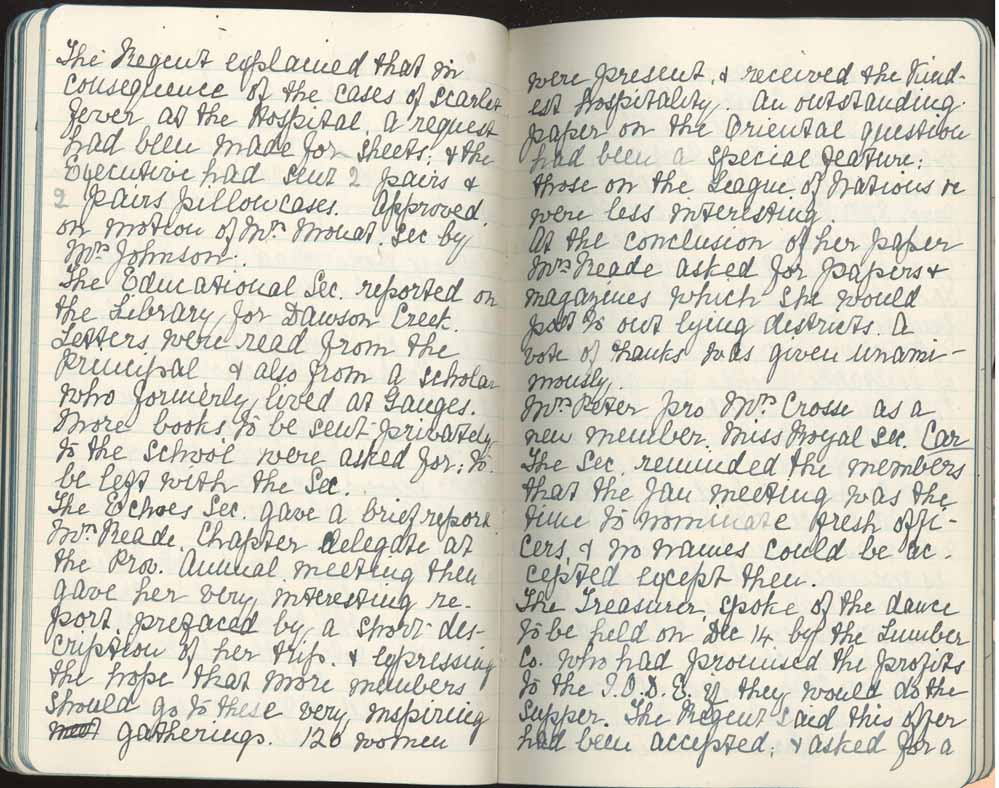 The Regent explained that in
consequence of the cases of scarlet
fever at the Hospital, a request
had been made for sheets; & the
Executive had sent 2 pairs &
2 pairs pillowcases. Approved
on motion of Mrs Mouat. Sec by
Mrs Johnson.
The Educational Sec. reported on
the Library for Dawson Creek.
Letters were read from the
Principal & also from a scholar
who formerly lived at Ganges.
More books to be sent privately
to the school were asked for; to
be left with the Sec.
The Echoes Sec. gave a brief report
Mrs Reade, Chapter delegate at
the Prov. Annual meeting then
gave her very interesting re-
port, prefaced by a short des-
cription of her trip, & expressing
the hope that more members
should go to these very inspiring
meet gatherings. 120 women
were present, & received the kind-
est hospitality. An outstanding
paper on the Oriental question
had been a special feature;
those on the League of Nations re
were less interesting.
At the conclusion of her paper
Mrs Reade asked for papers &
magazines which she would
post to out lying districts. A
vote of thanks was given unami-
mously.
Mrs Peter pro Mrs Crosse as a
new member. Miss Royal sec. Car
The Sec. reminded the members
that the Jan meeting was the
time to nominate fresh offi-
cers, & no names could be ac-
cepted except then.
The Treasurer spoke of the dance
to be held on Dec 14 by the Lumber
Co. who had promised the profits
to the I.O.D.E. if they would do the
supper. The Regent said this offer
had been accepted; & asked for a